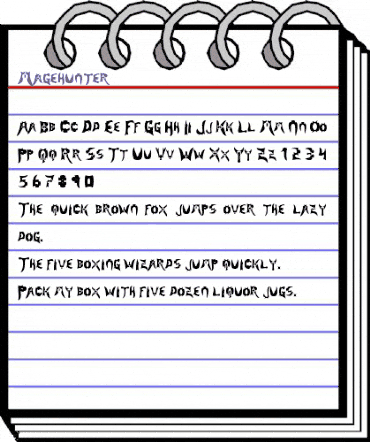 Magehunter
Aa Bb Cc Dd Ee Ff Gg Hh Ii Jj Kk Ll Mm Nn Oo
Pp Qq Rr Ss Tt Uu Vv Ww Xx Yy Zz 1 2 3 4
5 6 7 8 9 0
The quick brown fox jumps over the lazy
dog.
The five boxing wizards jump quickly.
Pack my box with five dozen liquor jugs.